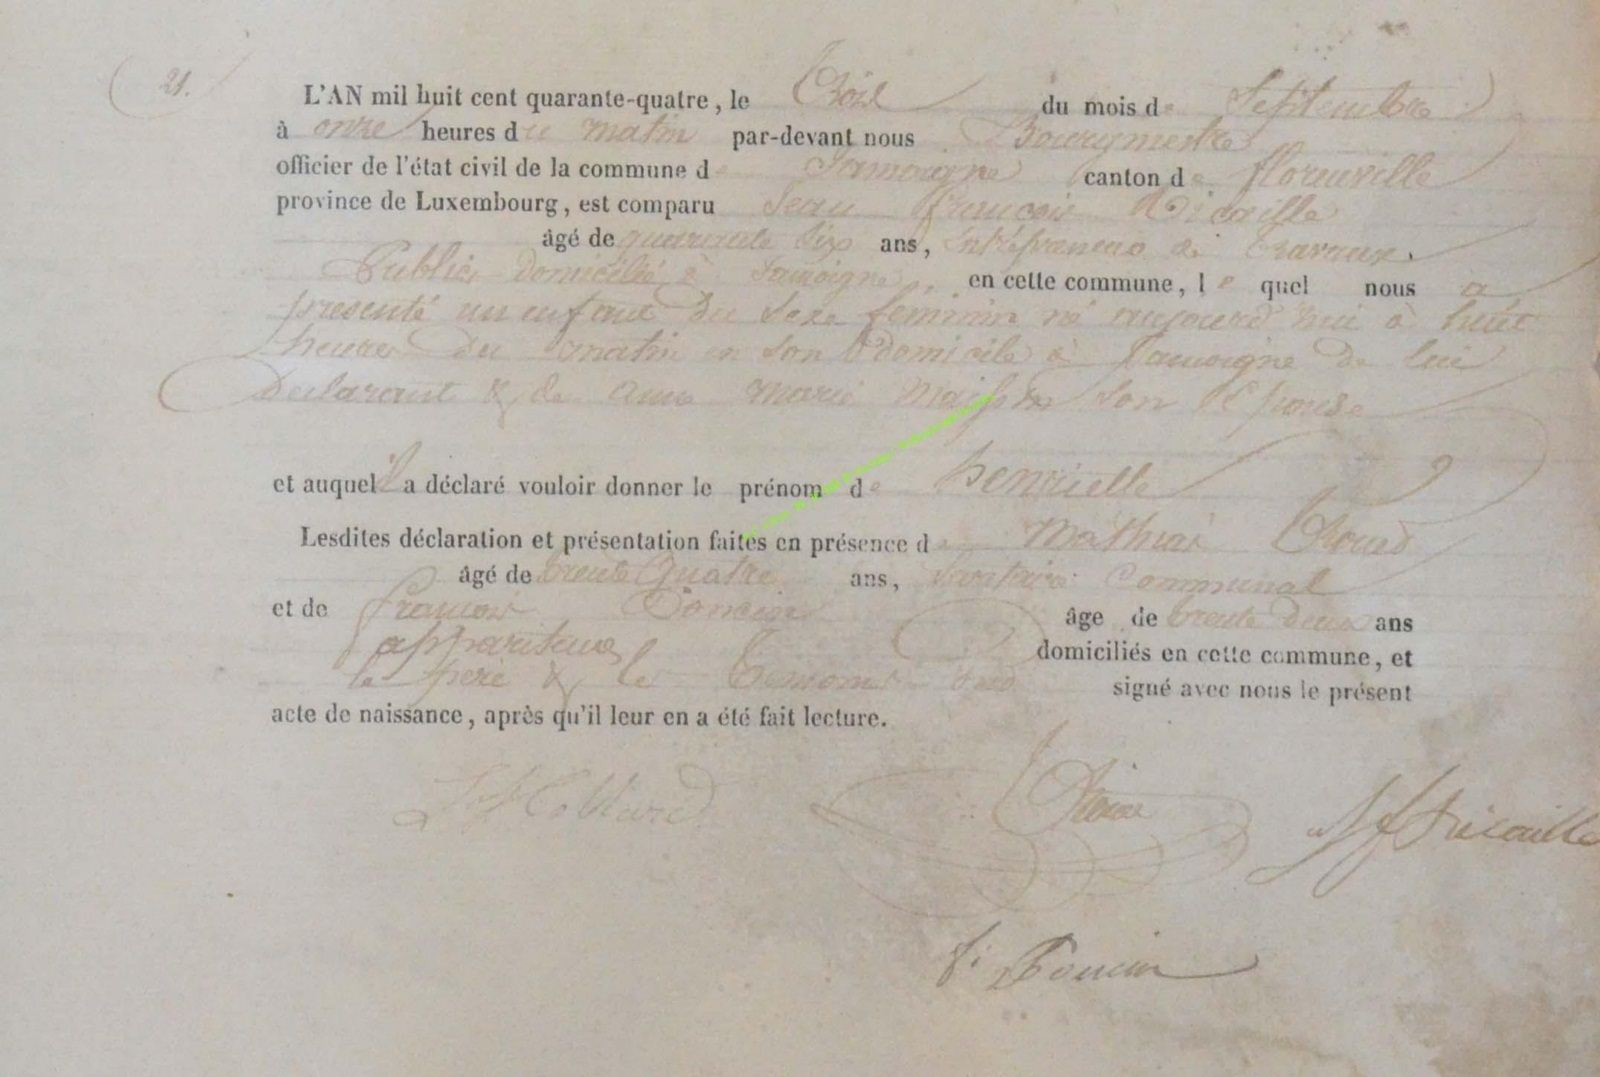 21.
L'AN mil huit cent quarante-quatre, le trois du mois de Septembre
à onze heures du matin par-devant nous Bourgmestre
officier de l'état civil de la commune de Jamoigne canton de florenville
province de Luxembourg, est comparu Jean françois Dicaille
âgé de quarante six ans, Entrepreneur de travaux
Publics domicilié à Jamoigne, en cette commune, lequel nous a
présenté un enfant du sexe feminin né aujourd'hui à huit
heures du matin en son domicile à Jamoigne de lui
declarant & de Anne Marie son Epouse
et auquel il a déclaré vouloir donner le prénom de henrielle
Lesdites déclaration et présentation faites en présence de Mathias
âgé de trente quatre ans, Communal
et de françois âge de trente deux ans
appariteur domiciliés en cette commune, et
le père & les temoins ont signé avec nous le présent
acte de naissance, après qu'il leur en a été fait lecture.
Collard